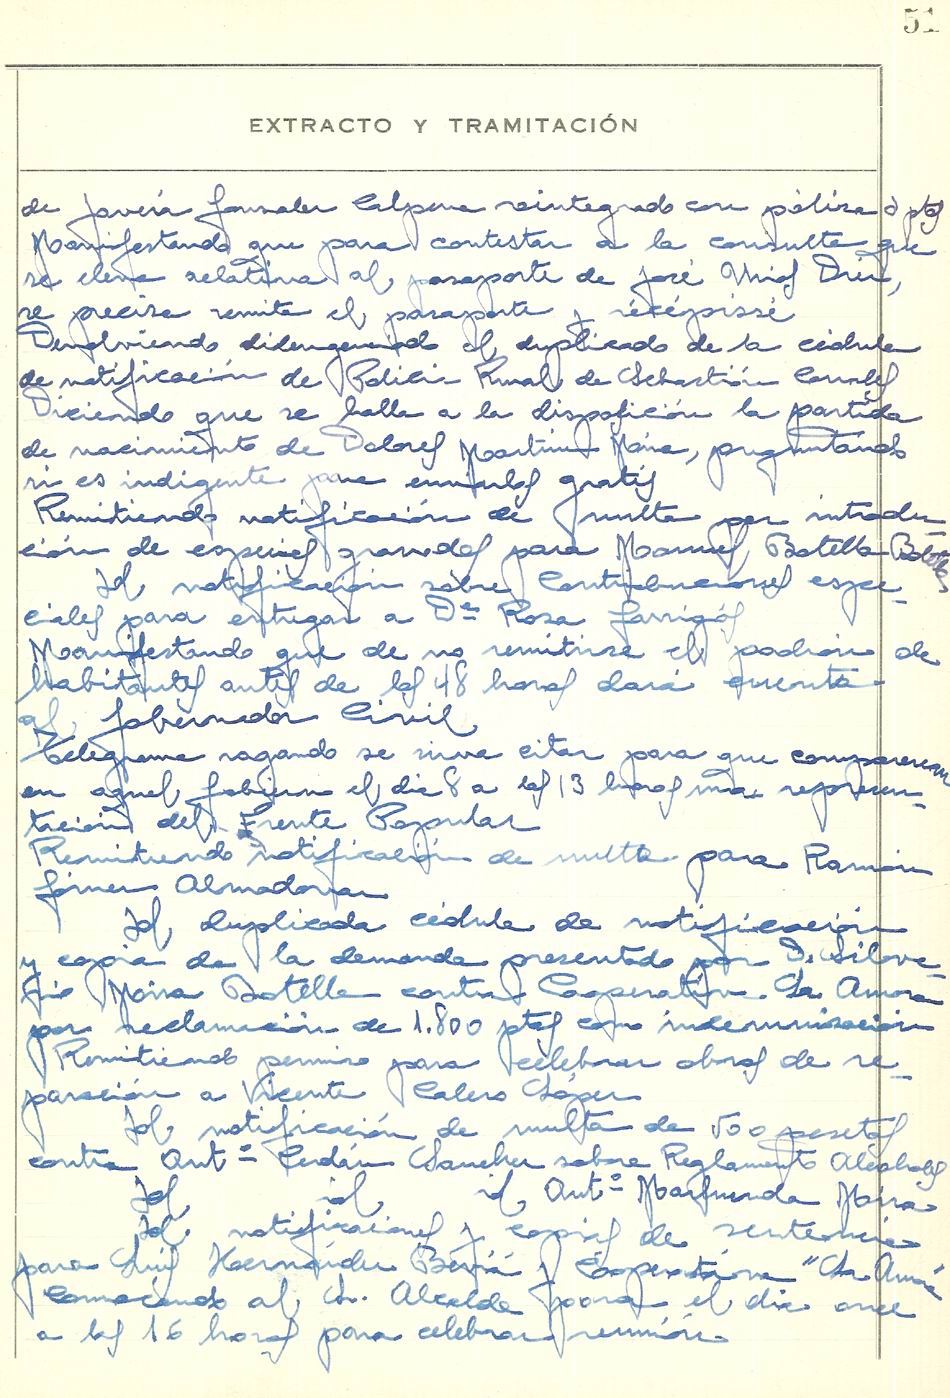 51
EXTRACTO Y TRAMITACIÓN
de González Calpena reintegrado con póliza 3 ptas
Manifestando que para contestar a la consulta que
se eleva relativa al pasaporte de José
se precisa remita el pasaporte y
Devolviendo el duplicado de la cédula
de notificación de Policia Rural de Sebastián
Diciendo que se halla a la disposición la partida
de nacimiento de Dolores Martínez Mira, preguntando
si es indigente para enviarlos gratis
Remitiendo notificación de multa por introduc-
ción de especies gravadas para Manuel Botella Botella
Id. notificación sobre Contribuciones espe-
ciales para entregar a Dª Rosa Garrigós
Manifestando que de no remitirse el padrón de
habitantes antes de las 48 horas dará cuenta
al Gobernador Civil
Telegrama rogando se sirva citar para que comparezcan
en aquel Gobierno el dia 8 a las 13 horas una represen-
tación del Frente Popular
Remitiendo notificación de multa para Ramón
Gómez Almodovar
Id. duplicada cédula de notificación
y copia de la demanda presentada por D. Silve-
rio Mira Botella contra Cooperativa La Amora
por reclamación de 1.800 ptas como indemnización
Remitiendo permiso para celebrar obras de re-
paración a Vicente Calero López
Id. notificación de multa de 500 pesetas
contra Antº Cerdán Sanchez sobre Reglamento Alcoholes
Id id id Antº Marhuenda Mira
Id. notificaciones y copias de sentencia
para Luis Hernández Beviá y Cooperativa "La
Convocando al Sr. Alcalde para el dia once
a las 16 horas para celebrar reunión